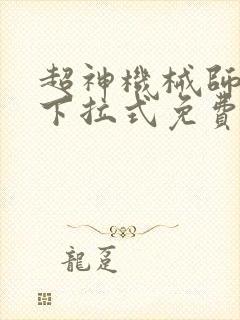 超神機械師
下拉式免費
龍跫